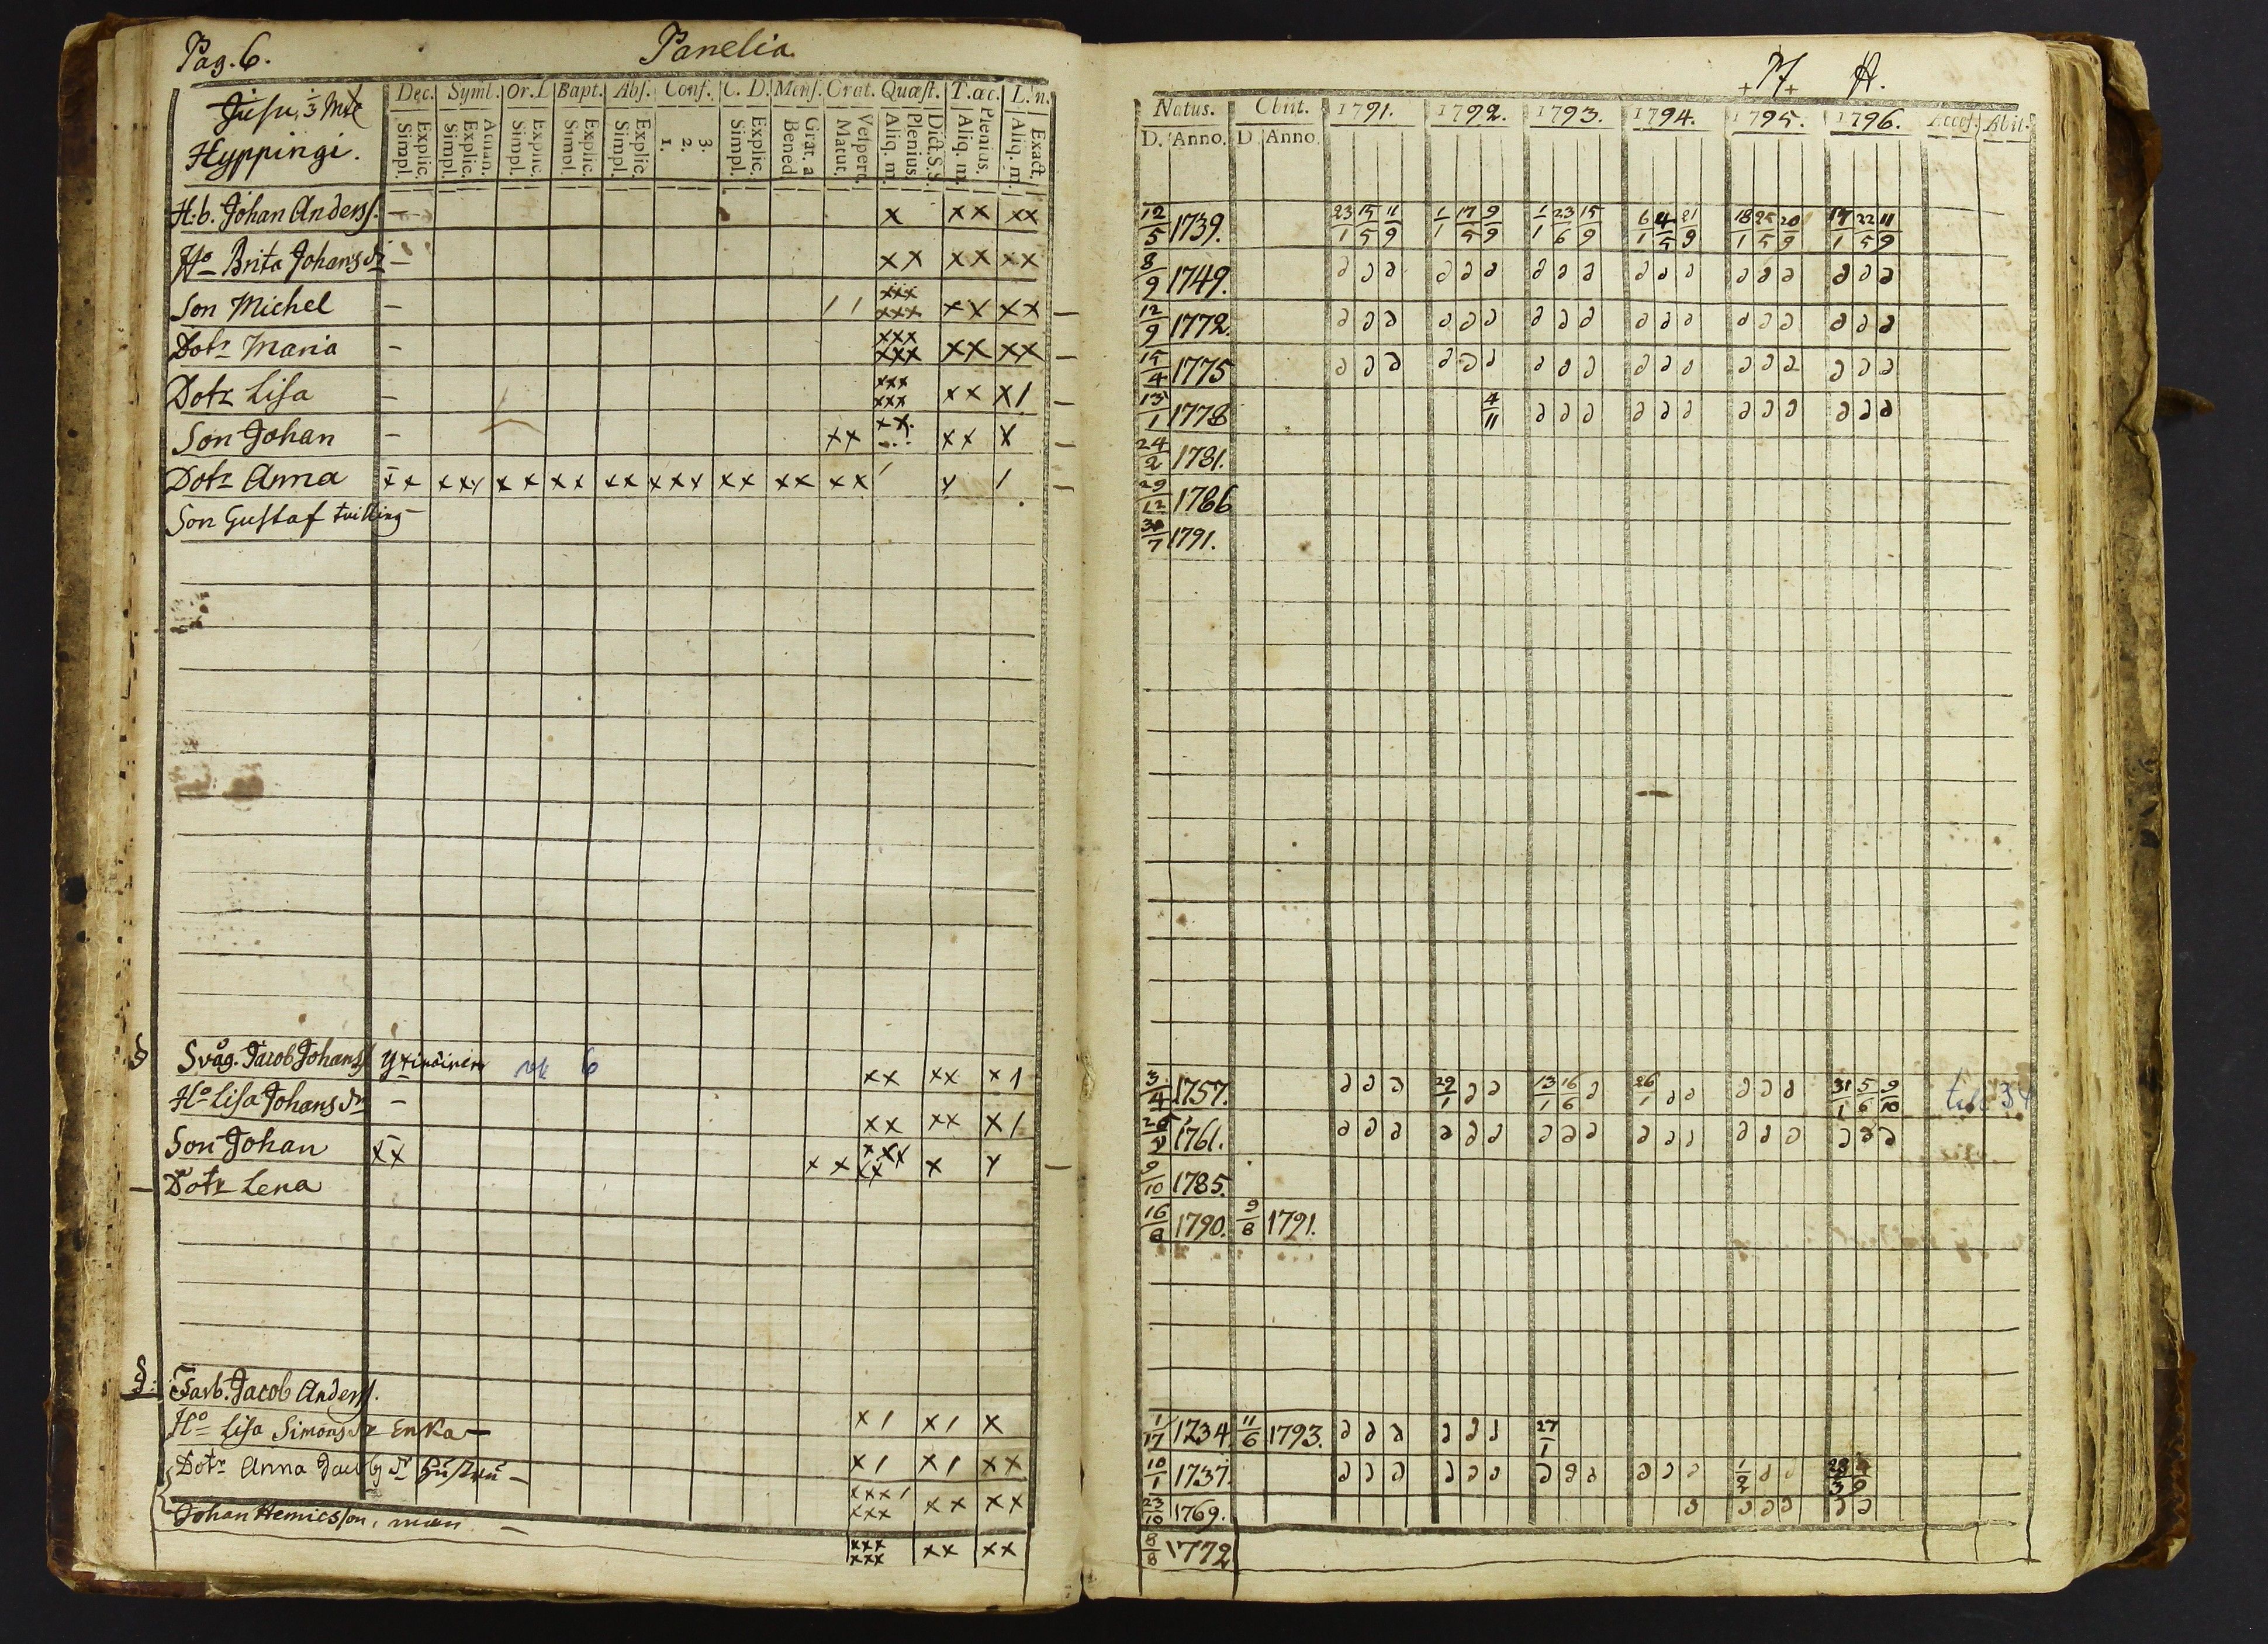 Pag. 6. Panelia
Jusu, 1/3 Mtl
Hyppingi.
Dec. Symb. Or. D. Bapt. Abs. Conf. C. D. Mens. Orat. Quæst. T. œc. L. n.
Explic. Simpl. Athan. Explic. Simpl. Explic. Simpl. Explic. Simpl. Explic. Simpl. 3. 2. 1. Explic. Simpl. Grat. a Bened Vespert. Matut. Dict. S. S. Plenius. Aliq. m. Plenius. Aliq. m Exact. Aliq. m.
H:b. Johan Anderss. — x xx xx
Ho Brita Johans dr — xx xx xx
Son Michel — / / xxx xxx xx xx —
Dotr Maria — xxx xxx xx xx —
Dotr Lisa — xxx xxx xx x1 —
Son Johan — xx xx xx x —
Dotr Anna xx xxx xx xx xx xxx xx xx xx / x / —
Son Gustaf tvilling —
§ Svåg. Jacob Johanss 6 xx xx x1
Ho Lisa Johans dr — xx xx x/
Son Johan xx xx xxx xx x x —
— Dotr Lena
§ Farb. Jacob Anderss. x/ x/ x
Ho Lisa Simons dr Enka — x/ x/ xx
Dotr Anna Jacobs dr Hustru — xxx/ xxx xx xx
Johan Henricsson, man — xxx xxx xx xx
Natus. Obiit. 1791. 1792. 1793. 1794. 1795. 1796. Access. Abit.
D. Anno. D Anno
12/5 1739. 23/1 15/5 11/9 1/1 17/5 9/9 1/1 23/6 15/9 6/1 4/5 21/9 18/1 25/5 20/9 17/1 22/5 11/9
8/9 1749. d d d d d d d d d d d d d d d d d d
12/9 1772. d d d d d d d d d d d d d d d d d d
15/4 1775 d d d d d d d d d d d d d d d d d d
13/1 1778 4/11 d d d d d d d d d d d d
24/2 1781.
29/12 1786
30/7 1791.
3/4 1757. d d d 29/1 d d 13/1 16/6 d 26/1 d d d d d 31/1 5/6 9/10 till 34
1761. d d d d d d d d d d d d d d d d d d
9/10 1785.
16/8 1790. 9/8 1791.
1/17 1734 11/6 1793. d d d d d d 27/1
10/1 1737 d d d d d d d d d d d d 1/2 d d
23/10 1769. d d d d d d
8/8 1772